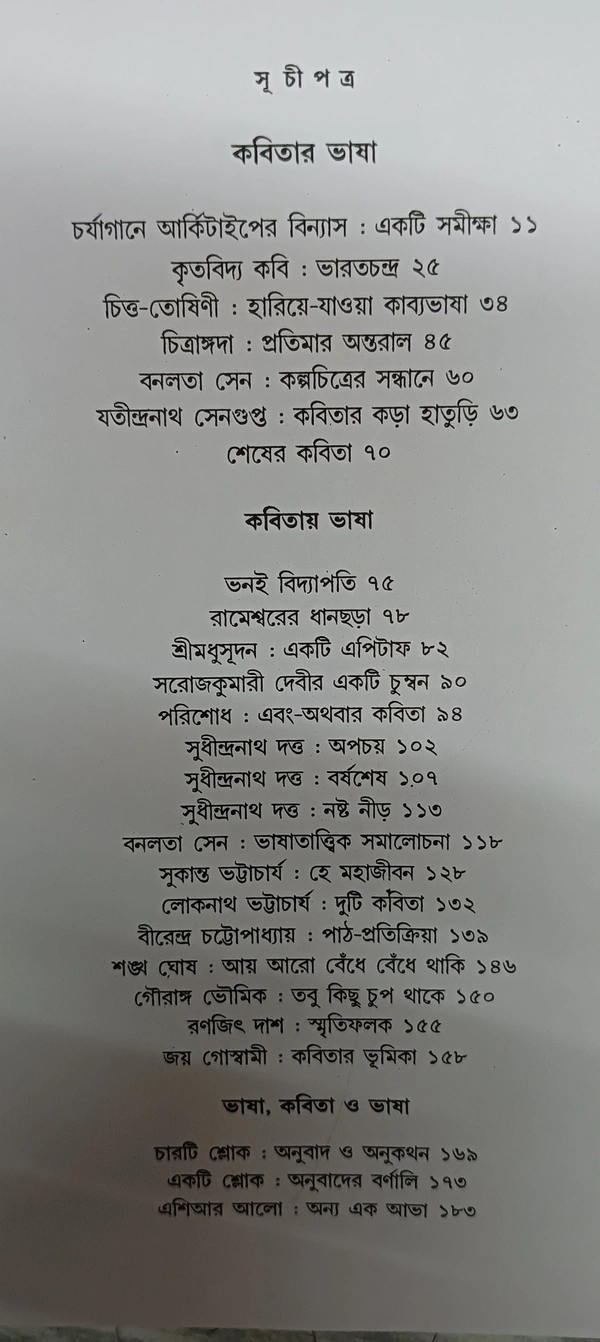 সূ চী প ত্র
কবিতার ভাষা
চর্যাগানে আর্কিটাইপের বিন্যাস : একটি সমীক্ষা ১১
কৃতবিদ্য কবি : ভারতচন্দ্র ২৫
চিত্ত-তোষিণী : হারিয়ে-যাওয়া কাব্যভাষা ৩৪
চিত্রাঙ্গদা : প্রতিমার অন্তরাল ৪৫
বনলতা সেন : কল্পচিত্রের সন্ধানে ৬০
যতীন্দ্রনাথ সেনগুপ্ত : কবিতার কড়া হাতুড়ি ৬৩
শেষের কবিতা ৭০
কবিতায় ভাষা
ভনই বিদ্যাপতি ৭৫
রামেশ্বরের ধানছড়া ৭৮
শ্রীমধুসূদন : একটি এপিটাফ ৮২
সরোজকুমারী দেবীর একটি চুম্বন ৯০
পরিশোধ : এবং-অথবার কবিতা ৯৪
সুধীন্দ্রনাথ দত্ত : অপচয় ১০২
সুধীন্দ্রনাথ দত্ত : বর্ষশেষ ১০৭
সুধীন্দ্রনাথ দত্ত : নষ্ট নীড় ১১৩
বনলতা সেন : ভাষাতাত্ত্বিক সমালোচনা ১১৮
সুকান্ত ভট্টাচার্য : হে মহাজীবন ১২৮
লোকনাথ ভট্টাচার্য : দুটি কবিতা ১৩২
বীরেন্দ্র চট্টোপাধ্যায় : পাঠ-প্রতিক্রিয়া ১৩৯
শঙ্খ ঘোষ : আয় আরো বেঁধে বেঁধে থাকি ১৪৬
গৌরাঙ্গ ভৌমিক : তবু কিছু চুপ থাকে ১৫০
রণজিৎ দাশ : স্মৃতিফলক ১৫৫
জয় গোস্বামী : কবিতার ভূমিকা ১৫৮
ভাষা, কবিতা ও ভাষা
চারটি শ্লোক : অনুবাদ ও অনুকথন ১৬৯
একটি শ্লোক : অনুবাদের বর্ণালি ১৭৩
এশিআর আলো : অন্য এক আভা ১৮৩